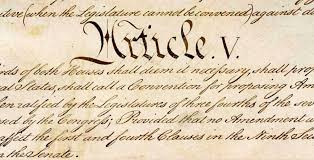 tive (when the Legislature cannot be convened) against do
Article. V.
irds of both Houses shall deem it necessary, shall prop
al States, shall call a Convention for proposing Ame
en ratified by the Legislatures of three fourths of the sev
osed by the Congress; Provided that no Amendment w
affect the first and fourth Clauses in the Ninth Sec
n the Senate.